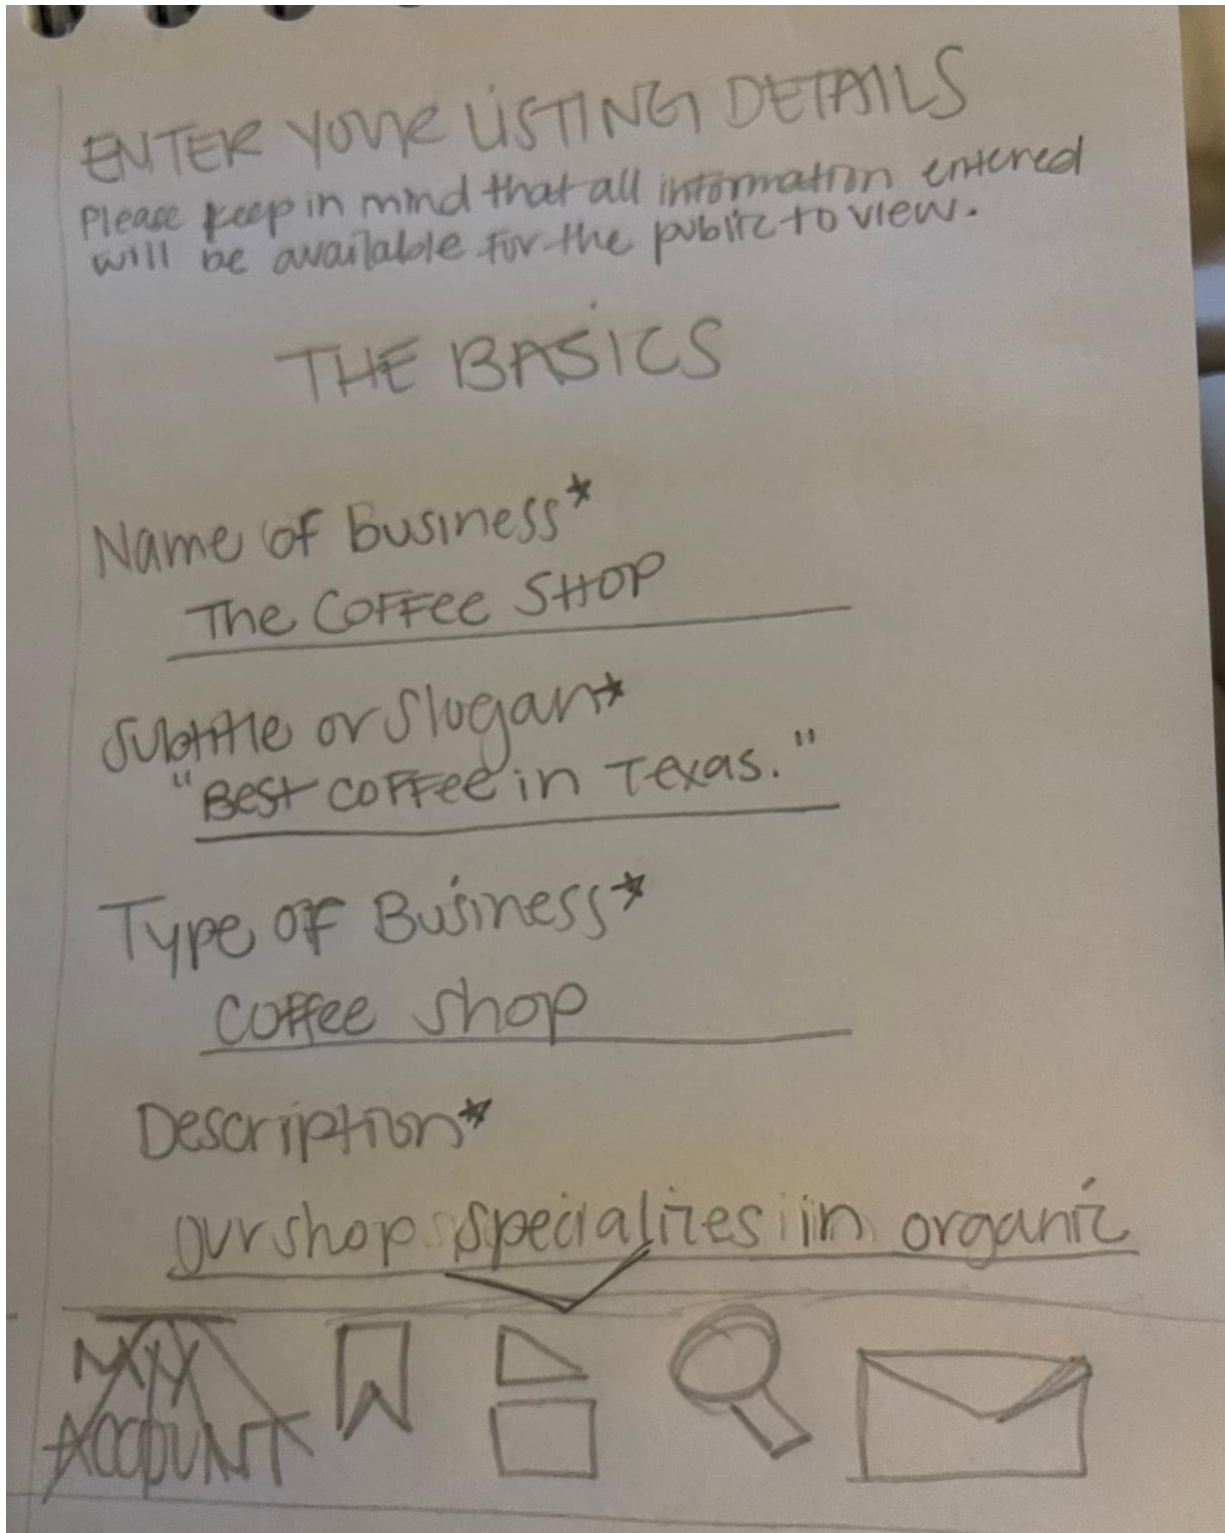 ENTER YOUR LISTING DETAILS
Please keep in mind that all information entered
will be available for the public to view.
THE BASICS
Name of Business*
The Coffee SHOP
Subtitle or Slogan*
"Best coffee in Texas."
Type of Business*
Coffee shop
Description*
our shop specializes in organic
MY
ACCOUNT